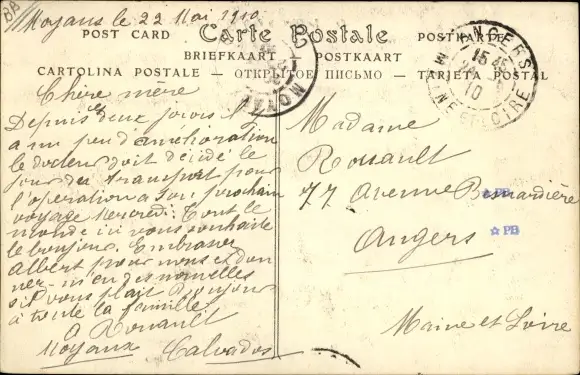 Moyaux le 22 Mai 1910
POST CARD
Carte Postale
POSTKARTE
BRIEFKAART
POSTKAART
CARTOLINA POSTALE — ОТКРЫТОЕ ПИСЬМО — TARJETA POSTAL
ANGERS
15 45
10
MAINE ET LOIRE
MOYAUX
Chère mère
Depuis ces deux jours il y
a un peu d'amélioration
le docteur doit décidé le
jour du transport pour
l'opération a son prochain
voyage Mercredi: Tout le
monde ici vous souhaite
le bonjour. Embrasser
Albert pour nous et don
ner-m'en des nouvelles
si vous plait Bonjour
à toute la famille
A Rouault
Moyaux Calvados
Madame
Rouault
77 Avenue Besnardière
Angers
Maine et Loire
PB
PB